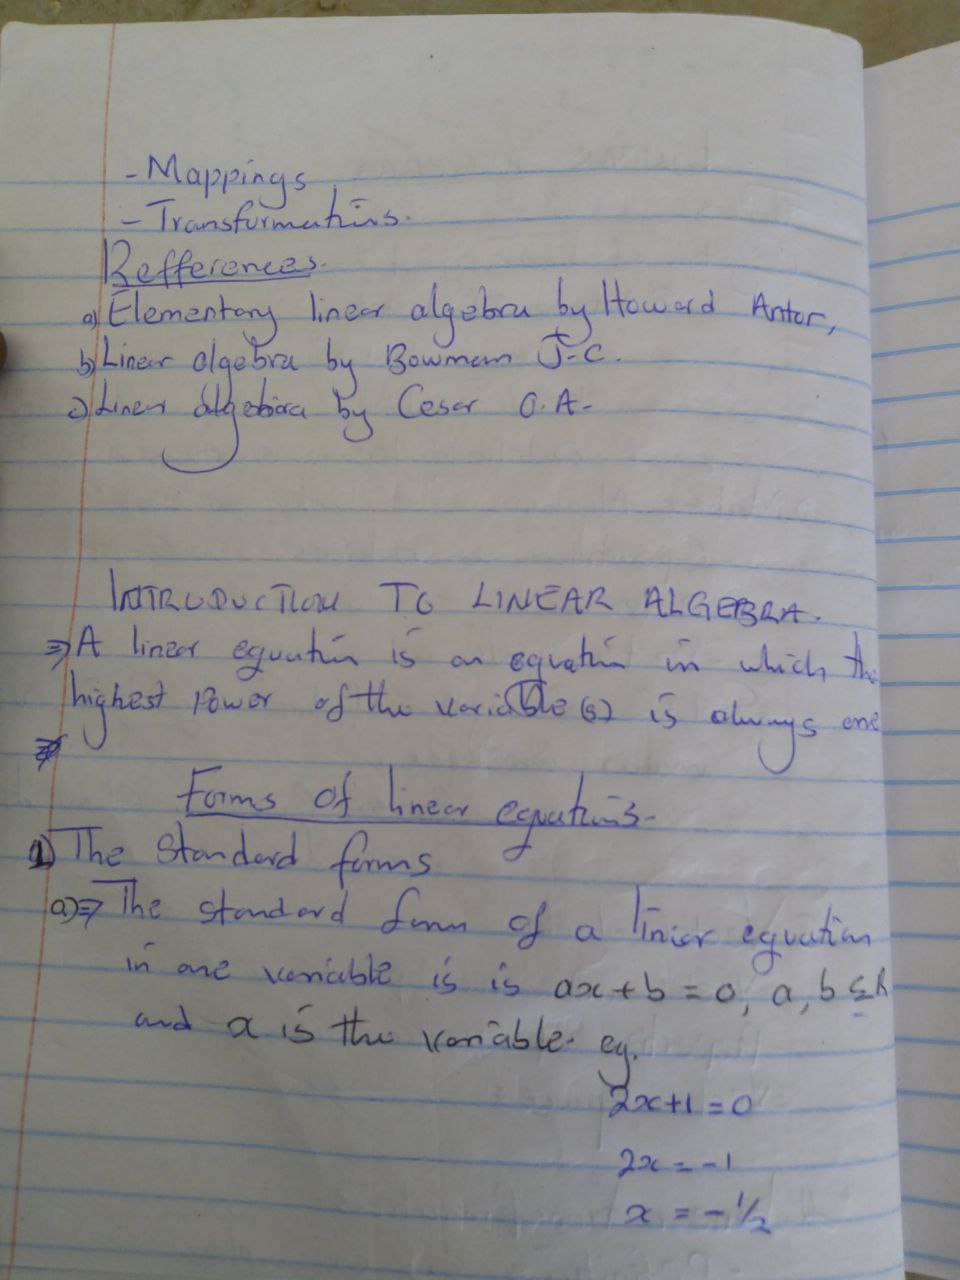 - Mappings
- Transformations.
Refferences.
a) Elementary linear algebra by Howard Anton,
b) Linear algebra by Bowman J.C.
c) Linear algebra by Cesar O.A-
INTRODUCTION TO LINEAR ALGEBRA.
⇒ A linear equation is an equation in which the
highest power of the variable(s) is always one
Forms of linear equations.
1) The standard forms
a) ⇒ The standard form of a linear equation
in one variable is is ax + b = 0, a, b ∈ R
and x is the variable. eg.
2x+1 = 0
2x = -1
x = -1/2